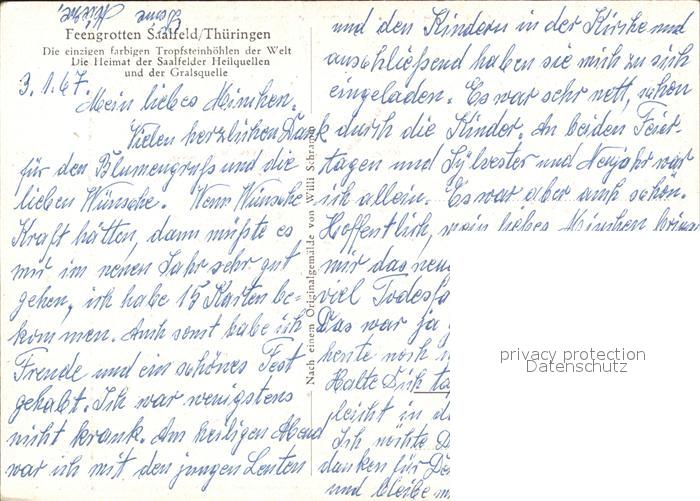 Feengrotten Saalfeld/Thüringen
Die einzigen farbigen Tropfsteinhöhlen der Welt
Die Heimat der Saalfelder Heilquellen
und der Gralsquelle
3.1.67.
Mein liebes Minchen.
Vielen herzlichen Dank
für den Blumengruß und die
lieben Wünsche. Wenn Wünsche
Kraft hätten, dann müßte es
mir im neuen Jahr sehr gut
gehen, ich habe 15 Karten be-
kommen. Auch sonst habe ich
Freude und ein schönes Fest
gehabt. Ich war wenigstens
nicht krank. Am heiligen Abend
war ich mit den jungen Leuten
Nach einem Originalgemälde von Willi Schramm
und den Kindern in der Kirche und
anschließend haben sie mich zu sich
eingeladen. Es war sehr nett, schon
durch die Kinder. An beiden Feier-
tagen und Sylvester und Neujahr war
ich allein. Es war aber auch schön.
Hoffentlich, mein liebes Minchen
mir das neu
viel Todesfä
Das war ja
heute noch
Halte Dich ta
gleich in d
Ich möchte D
danken für De
und bleibe m
privacy protection
Datenschutz